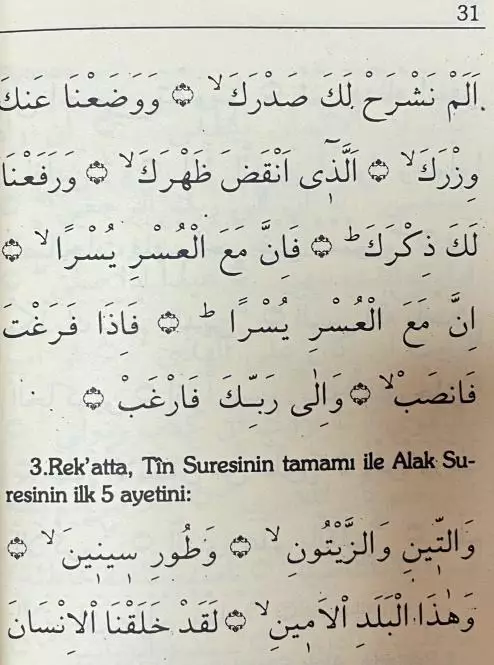 31
اَلَمْ نَشْرَحْ لَكَ صَدْرَكَۙ ۝ وَوَضَعْنَا عَنكَ
وِزْرَكَۙ ۝ اَلَّذٖٓى اَنْقَضَ ظَهْرَكَۙ ۝ وَرَفَعْنَا
لَكَ ذِكْرَكَؕ ۝ فَاِنَّ مَعَ الْعُسْرِ يُسْرًاۙ ۝
اِنَّ مَعَ الْعُسْرِ يُسْرًاؕ ۝ فَاِذَا فَرَغْتَ
فَانصَبْۙ ۝ وَاِلٰى رَبِّكَ فَارْغَبْ ۝
3.Rek’atta, Tîn Suresinin tamamı ile Alak Su-
resinin ilk 5 ayetini:
وَالتّٖينِ وَالزَّيْتُونِۙ ۝ وَطُورِ سٖينٖينَۙ ۝
وَهٰذَا الْبَلَدِ الْاَمٖينِۙ ۝ لَقَدْ خَلَقْنَا الْاِنْسَانَ